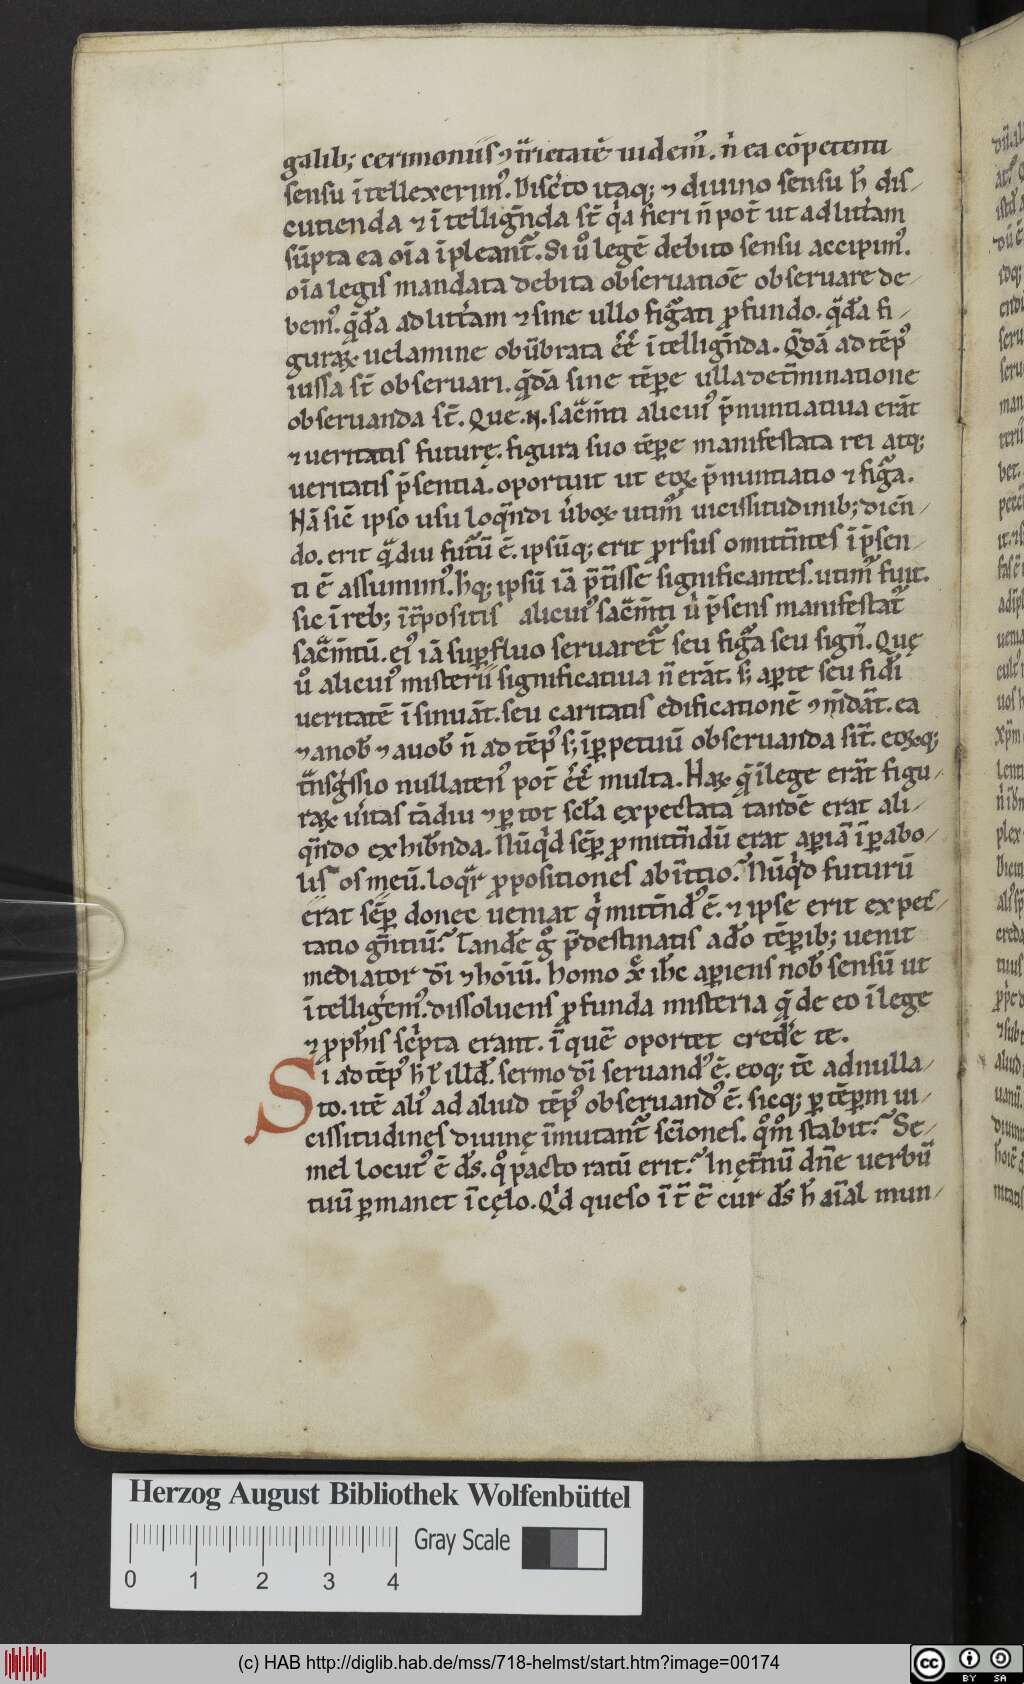 galib; cerimoniis ⁊ t̄rietatē uidem᷒. n̄ ea cōpetenti
sensu ītellexerim᷒. Discͥto itaq; ⁊ diuino sensu h̄ dis-
cutienda ⁊ ītellign̄da st̄ qͥa fieri n̄ pot̄ ut ad litt̓am
sūpta ea oīa īpleant᷑. Si u᷒o legē debito sensu accipim᷒.
oīa legis mandata debita obseruatiōe obseruare de-
bem᷒. qͣdā ad litt̓am ⁊ sine ullo figͣati ꝓfundo. qͣdā fi-
guraꝝ uelamine obūbrata ēē ītellign̄da. Qͣdā ad tēp᷒
iussa st̄ obseruari. qͣdā sine tēꝑe ulla det̄minatione
obseruanda st̄. Que .N. sac̄m̄ti alicui᷒ p̄nuntiatiua erāt
⁊ ueritatis futurę. figura suo tēꝑe manifestata rei atq;
ueritatis p̄sentia. oportuit ut eoꝝ p̄nuntiatio ⁊ figͣa.
Nā sic̄ ipso usu loqn̄di u̓boꝝ utim᷑ uicissitudinib; dicen̄-
do. erit qͣdiu futū ē. ipsūq; erit prorsus omitt̄ntes ī p̄sen-
ti ē assumim᷒. hͦq; ipsū iā p̄t̄isse significantes. utim᷑ fuit.
sic ī reb; īt̄positis alicui᷒ sac̄m̄ti u̓ p̄sens manifestat᷑
sac̄m̄tū. ei᷒ iā suꝑfluo seruaret᷑ seu figͣa seu sign̄. Quę
u᷒o alicui᷒ misterii significatiua n̄ erāt. s; aꝑte seu fidēi
ueritatē īsinuāt. seu caritatis edificationē ⁊ m̄dāt. ea
⁊ a nob̄ ⁊ a uob̄ n̄ ad tēp᷒ s; īꝑpetuū obseruanda sīt. eoꝝq;
t̄nsgͥssio nullaten᷒ pot̄ ēē multa. Haꝝ qͣ ī lege erāt figu-
raꝝ u̓itas tādiu ⁊ ꝑ tot scl̄a expectata tandē erat ali-
qn̄do exhib̄nda. Nūqͥd sēꝑ ꝓmittn̄dū erat aꝑiā ī ꝑabo-
lis os meū. loqr̄ ꝓpositiones ab īttio. Nūqͥd futurū
erat sēꝑ donec ueniat qͥ mittn̄d᷒ ē. ⁊ ipse erit expec-
tatio gn̄tiū. Tandē gͦ p̄destinatis a dō tēꝑib; uenit
mediator dī ⁊ hoīū. homo xͤ ih̄c aꝑiens nob̄ sensū ut
ītelligem᷒. dissoluens ꝓfunda misteria qͣ de eo ī lege
⁊ ꝓph̄is scͥpta erant. ī quē oportet credēe te.
Si ad tēp᷒ h̄ l̄ illd̄. sermo dī seruand᷒ ē. eoq; tē adnulla-
to. itē ali᷒ ad aliud tēp᷒ obseruand᷒ ē. sicq; ꝑ tēꝑm ui-
cissitudines diuinę īmutant᷑ scīones. qͦm̊ stabit. Se-
mel locut᷒ ē ds̄. qͦ pacto ratū erit. In ęt̄nū dn̄e uerbū
tuū ꝑmanet ī cęlo. Qͥd queso ī t̄ ē cur ds̄ h̄ aīal mun-
Herzog August Bibliothek Wolfenbüttel
Gray Scale
0 1 2 3 4
(c) HAB http://diglib.hab.de/mss/718-helmst/start.htm?image=00174
cc BY SA